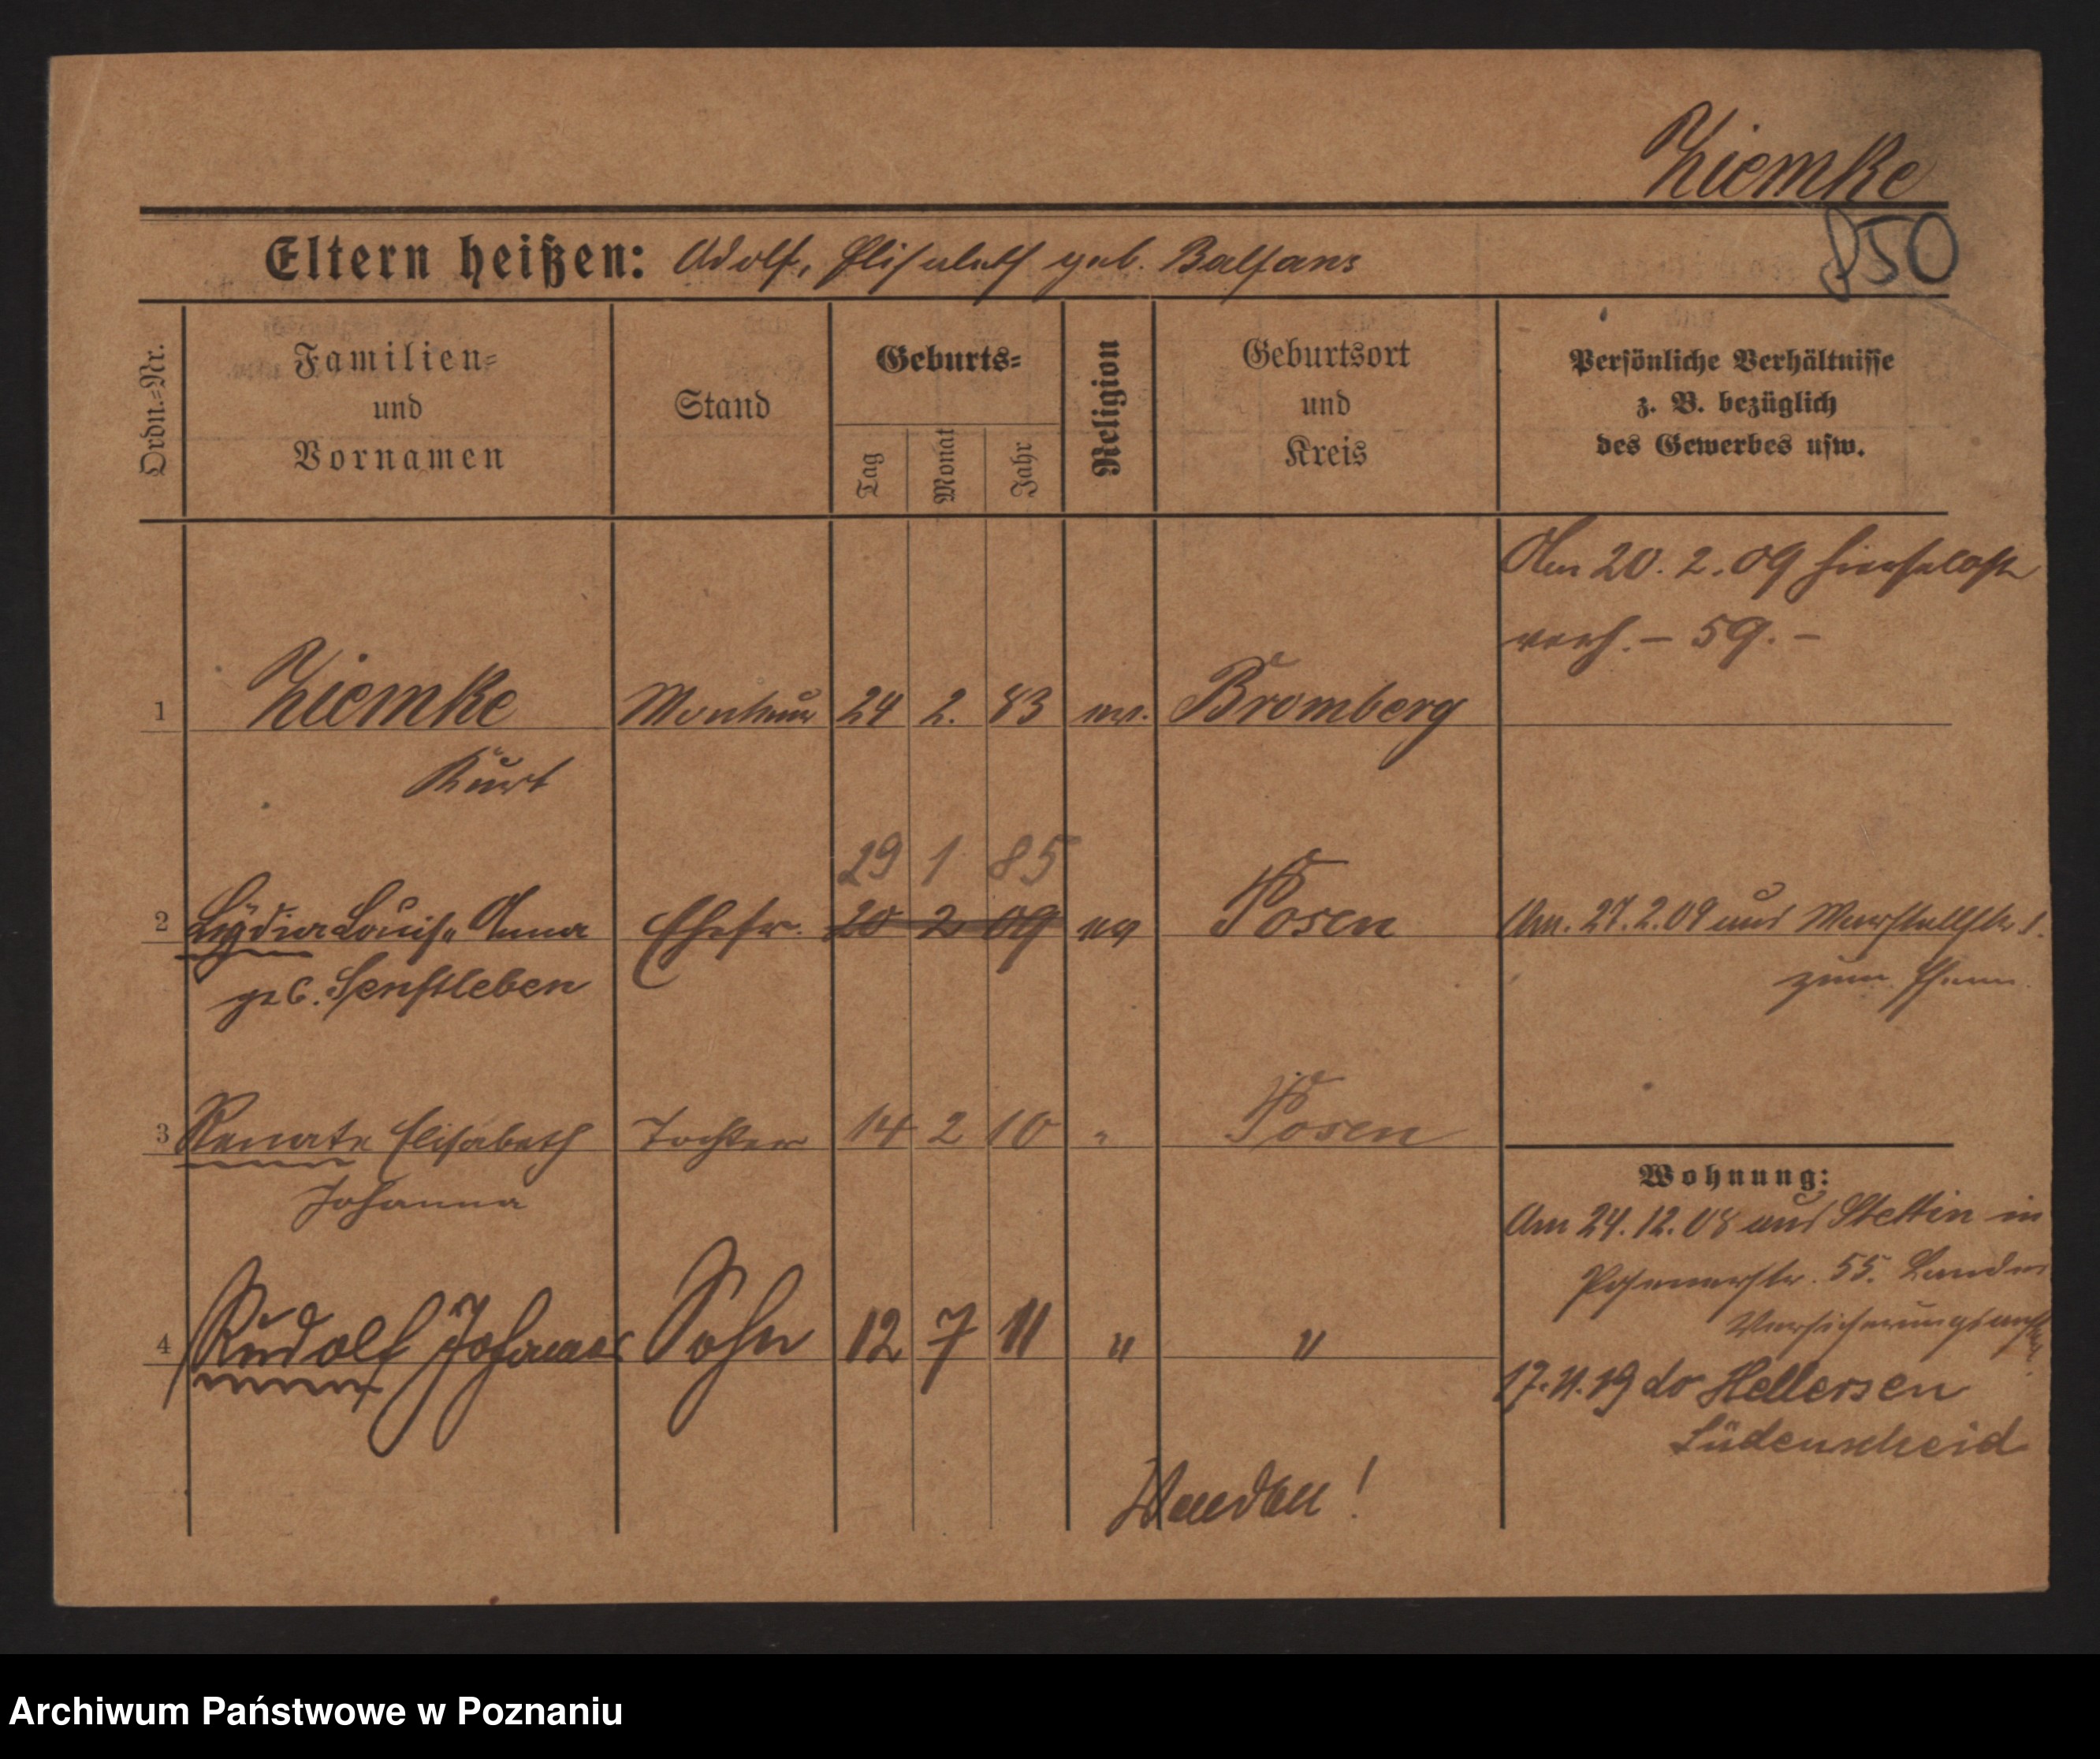 Ziemke
850
Eltern heißen: Adolf, Elisabeth geb. Balfans
Ordn.-Nr.
Familien-
und
Vornamen
Stand
Geburts-
Tag
Monat
Jahr
Religion
Geburtsort
und
Kreis
Persönliche Verhältnisse
z. B. bezüglich
des Gewerbes usw.
Am 20. 2. 09 hierselbst
verh. – 59. –
1 Ziemke Monteur 24 2. 83 ev. Bromberg
Kurt
29 1 85
2 Lydia Louise Anna Ehefr. 20 2 09 ev Posen Am. 27. 2. 09 aus Marstallstr.
geb. Senftleben zum Ehem.
3 Renate Elisabeth Tochter 14 2 10 " Posen
Johanna
Wohnung:
Am 24. 12. 08 aus Stettin in
Posenerstr. 55. Landes
Versicherungsanstalt
4 Rudolf Johannes Sohn 12 7 11 " "
17. 11. 19 do Hellersen
Lüdenscheid
Wenden!
Archiwum Państwowe w Poznaniu